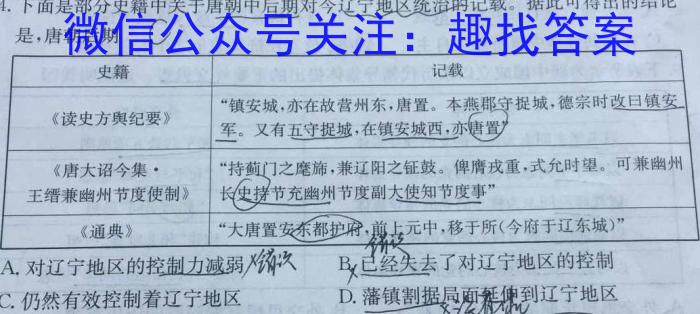 4. 下面是部分史籍中关于唐朝中后期对今辽宁地区统治的记载。据此可得出的结论
是,唐朝
微信公众号关注：趣找答案
史籍 记载
《读史方舆纪要》
“镇安城,亦在故营州东,唐置。本燕郡守捉城,德宗时改曰镇安
军。又有五守捉城,在镇安城西,亦唐置”
《唐大诏令集·
王缙兼幽州节度使制》
“持蓟门之麾旆,兼辽阳之钲鼓。俾膺戎重,式允时望。可兼幽州
长史持节充幽州节度副大使知节度事”
《通典》 “大唐置安东都护府,前上元中,移于所(今府于辽东城)”
A. 对辽宁地区的控制力减弱
B. 已经失去了对辽宁地区的控制
C. 仍然有效控制着辽宁地区
D. 藩镇割据局面延伸到辽宁地区